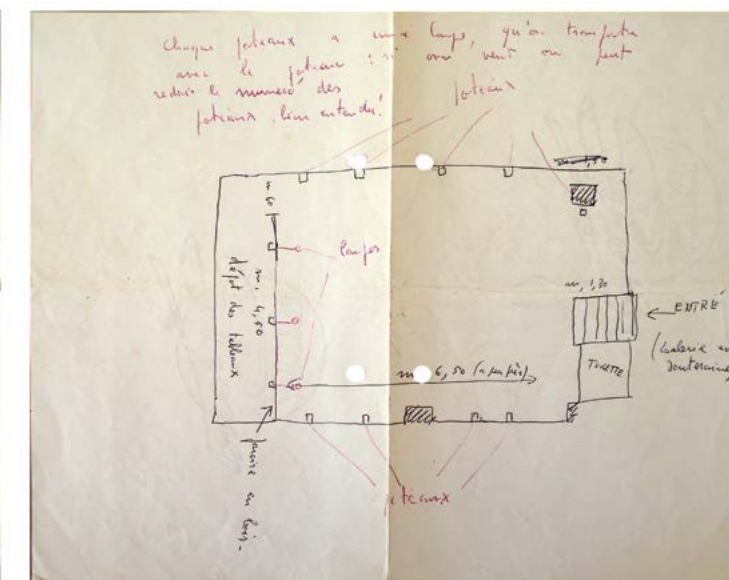 Chaque poteaux a une lampe, qu'on transporte
avec le poteau : si on veut on peut
reduir le numero des
poteaux, bien entendu!
poteaux
m. 1,50
m 6
lampes
m. 4,50
dépôt des tableaux
m. 1,30
ENTRÉ
(Galerie en
souterraine)
TOILETTE
m 6,50 (a peu près)
en bois-
poteaux